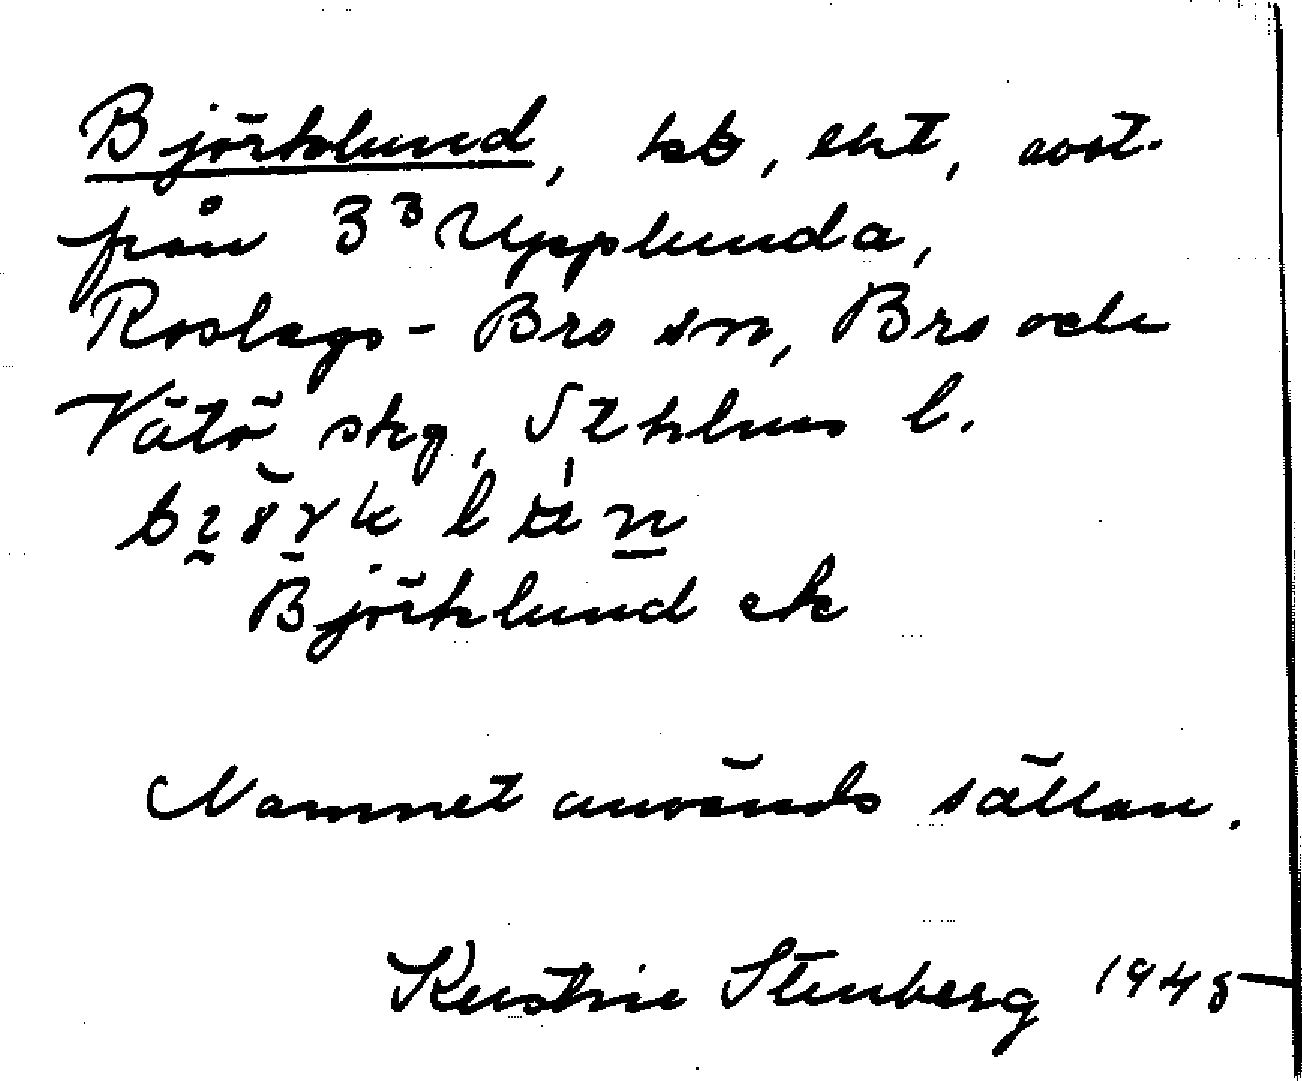 Björklund, hsb, ekt, avst.
från 3³ Upplunda,
Roslags-Bro sn, Bro och
Vätö skg, Sthlms l.
Björklund ek
Namnet används sällan.
Kerstin Stenberg 1945